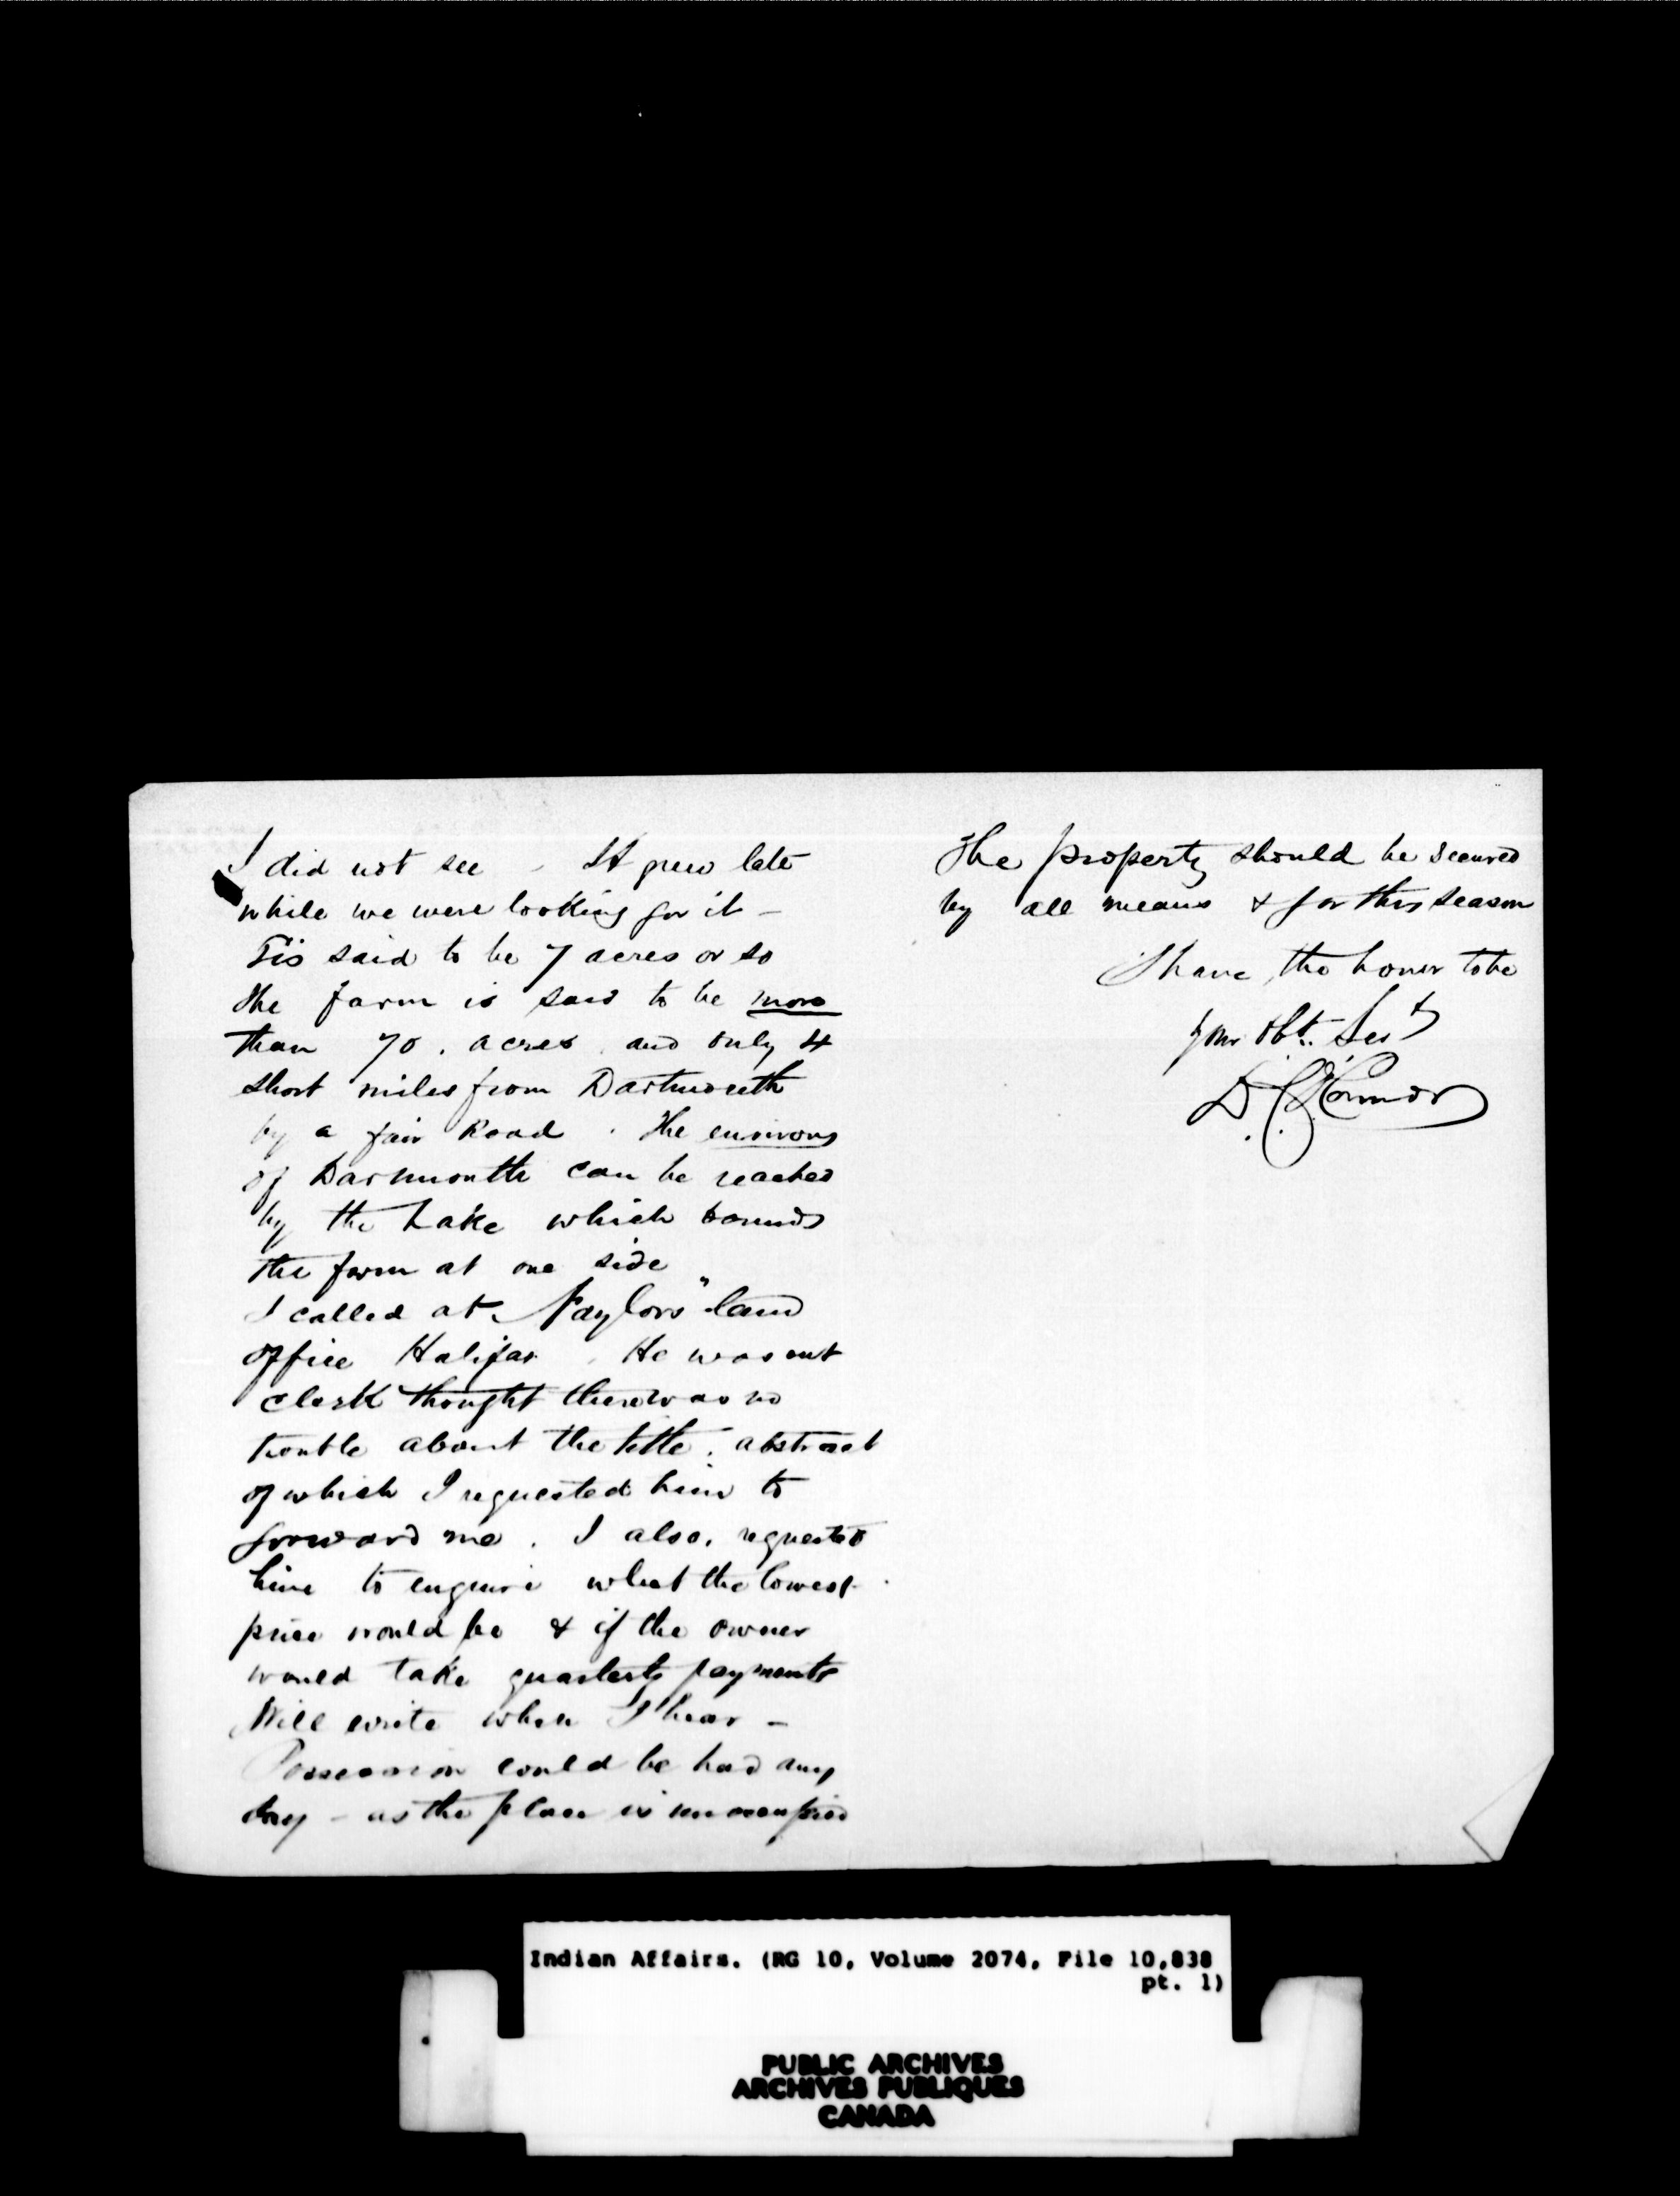 I did not see . It grew late
while we were looking for it –
Tis said to be 7 acres or so
The farm is said to be more
than 70 . acres and only 4
short miles from Dartmouth
by a fair Road . The environs
of Dartmouth can be reached
by the Lake which bounds
the farm at one side
I called at Naylors" land
office Halifax . He was out
clerk thought there was no
trouble about the title . abstract
of which I requested him to
forward me . I also, requested
him to enquire what the lowest
price would be & if the owner
would take quarterly payments
Will write when I hear –
Possession could be had any
day – as the place is unoccupied
The property should be secured
by all means & for this season
I have the honor to be
your Obt. Sert
D. O'Connor
Indian Affairs. (RG 10, Volume 2074, File 10,838
pt. 1)
PUBLIC ARCHIVES
ARCHIVES PUBLIQUES
CANADA